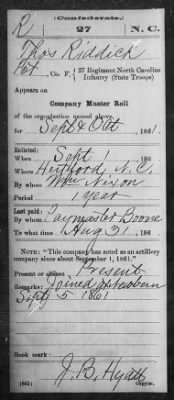 (Confederate.)
R 27 N.C.
Thos Riddick
Pvt, Co. F, 27 Regiment North Carolina
Infantry (State Troops)
Appears on
Company Muster Roll
of the organization named above,
for Sept & Oct, 1861.
Enlisted:
When Sept 1, 186 .
Where Hertford, N.C.
By whom Wm Nixon
Period 1 year
Last paid:
By whom Paymaster Boone
To what time Aug 31, 186 .
NOTE: "This company has acted as an artillery
company since about September 1, 1861."
Present or absent Present
Remarks: Joined at Newbern
Sept 5 1861
Book mark:
J. B. Hyatt
(661) Copyist.